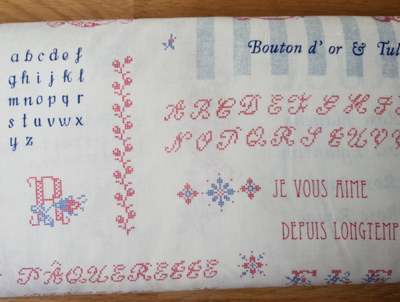 a b c d e f
g h i j k l
m n o p q r
s t u v w x
y z
Bouton d' or & Tul
A B C D E F G H I
N O P Q R S T U V
R
JE VOUS AIME
DEPUIS LONGTEMP
PÂQUERETTE